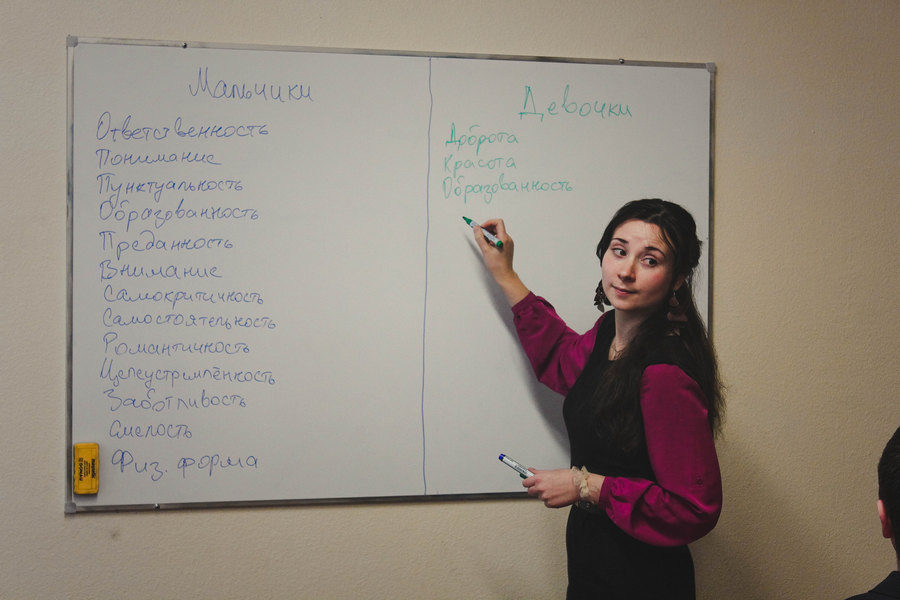 Мальчики
Ответственность
Понимание
Пунктуальность
Образованность
Преданность
Внимание
Самокритичность
Самостоятельность
Романтичность
Целеустремлённость
Заботливость
Смелость
Физ. форма
Девочки
Доброта
Красота
Образованность